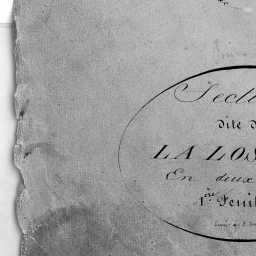 Secti
dite d
LA LOS
En deux
1ère Feuil